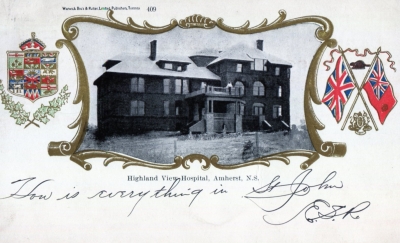 Warwick Bro's & Rutter Limited, Publishers, Toronto 409
Highland View Hospital, Amherst, N.S.
How is everything in St John